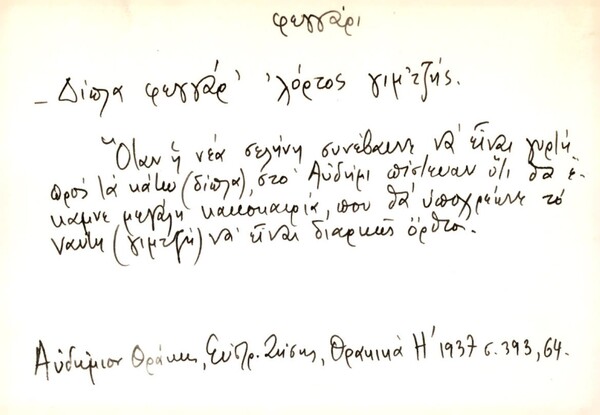 φεγγάρι
– Δίπλα φεγγάρ' 'λόρτος γιμ'τζής.
Ὅταν ἡ νέα σελήνη συνέβαινε νὰ εἶναι γυρτὴ
πρὸς τὰ κάτω (δίπλα), στὸ Αὐδήμι πίστευαν ὅτι θὰ ἔ-
καμνε μεγάλη κακοκαιρία, που θὰ ὑποχρέωνε τὸ
ναύτη (γιμιτζῆ) νὰ εἶναι διαρκῶς ὄρθιος.
Αὐδήμιον Θράκης, Εὐστρ. Ζήσης, Θρακικὰ Η' 1937 σ. 393, 64.